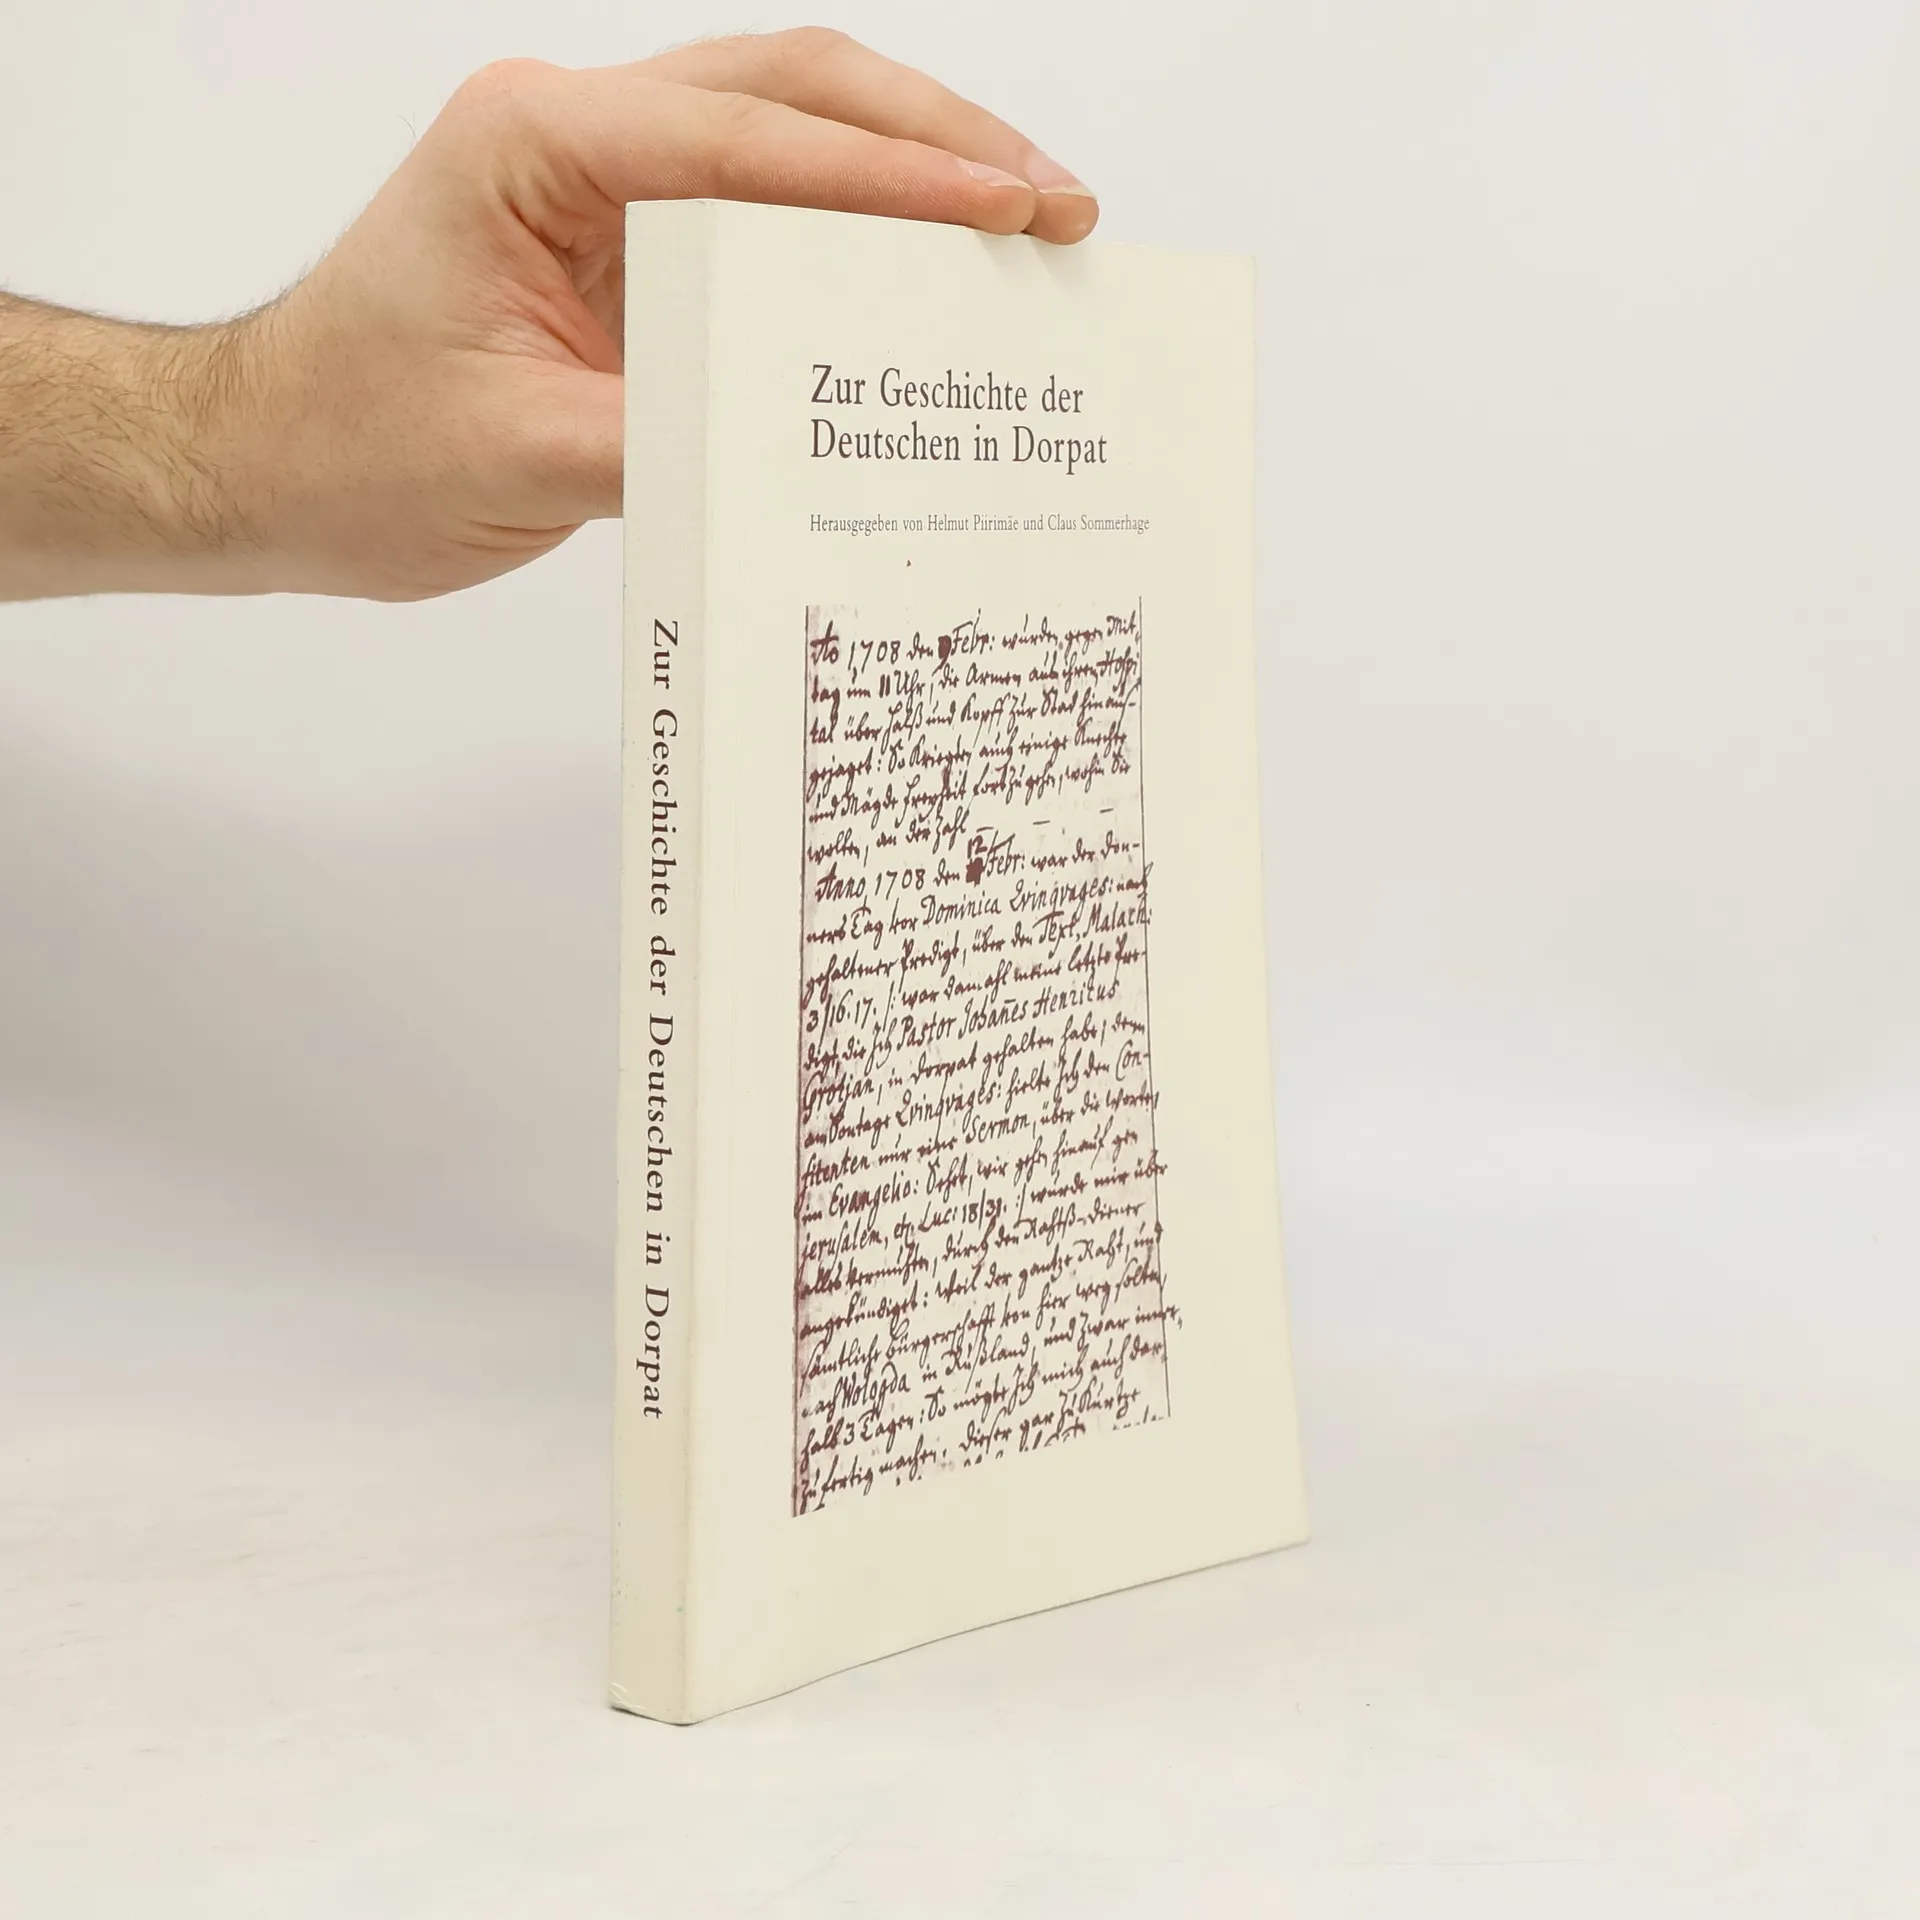 Zur Geschichte der
Deutschen in Dorpat
Herausgegeben von Helmut Piirimäe und Claus Sommerhage
Zur Geschichte der Deutschen in Dorpat
Ao 1708 den 9 Febr: wurden gegen Mit-
tag um 11 Uhr, die Armen aus ihren Hospi
tal über Halß und Kopff zur Stad hinauß-
gejaget: So kriegten auch einige Knechte
und Mägde freyheit fortzugehen, wohin Sie
wolten, an der Zahl — — —
Anno, 1708 den 12 Febr: war der Don-
ners Tag vor Dominica Qvinqvages: nach
gehaltener Predigt, über den Text, Malach:
3/16.17. /: war damahl meine letzte Pre-
digt, die Ich Pastor Johañes Henricus
Grotjan, in Dorpat gehalten habe; denn
am Sontage Qvinqvages: hielte Ich den Con-
fitenten nur eine Sermon, über die Worte
im Evangelio: Sehet, wir gehen hinauf gen
Jerusalem, etc. Luc: 18/31. :/ wurde mir über
alles vermuhten, durch den Rahtß-diener
angekündiget: weil der gantze Raht, und
sämtliche Bürgerschafft von hier weg solten,
nach Wologda in Rußland, und zwar inner-
halb 3 Tagen: So mögte Ich mich auch dar-
zu fertig machen. dieser gar zu Kurtze